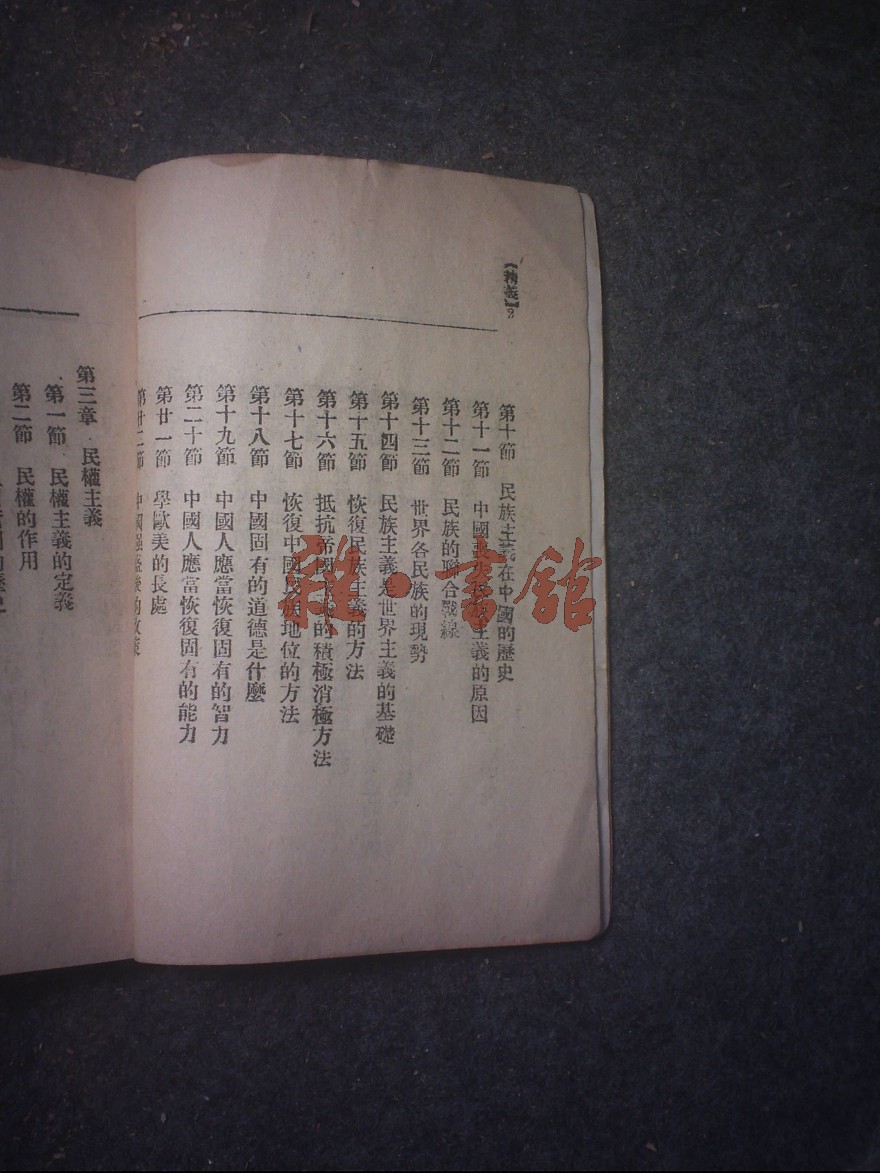 【精義】2
第十節 民族主義在中國的歷史
第十一節 中國喪失民族主義的原因
第十二節 民族的聯合戰線
第十三節 世界各民族的現勢
第十四節 民族主義是世界主義的基礎
第十五節 恢復民族主義的方法
第十六節 抵抗帝國主義的積極消極方法
第十七節 恢復中國民族地位的方法
第十八節 中國固有的道德是什麼
第十九節 中國人應當恢復固有的智力
第二十節 中國人應當恢復固有的能力
第廿一節 學歐美的長處
第廿二節 中國強盛後的政策
第三章 民權主義
第一節 民權主義的定義
第二節 民權的作用
雜·書館